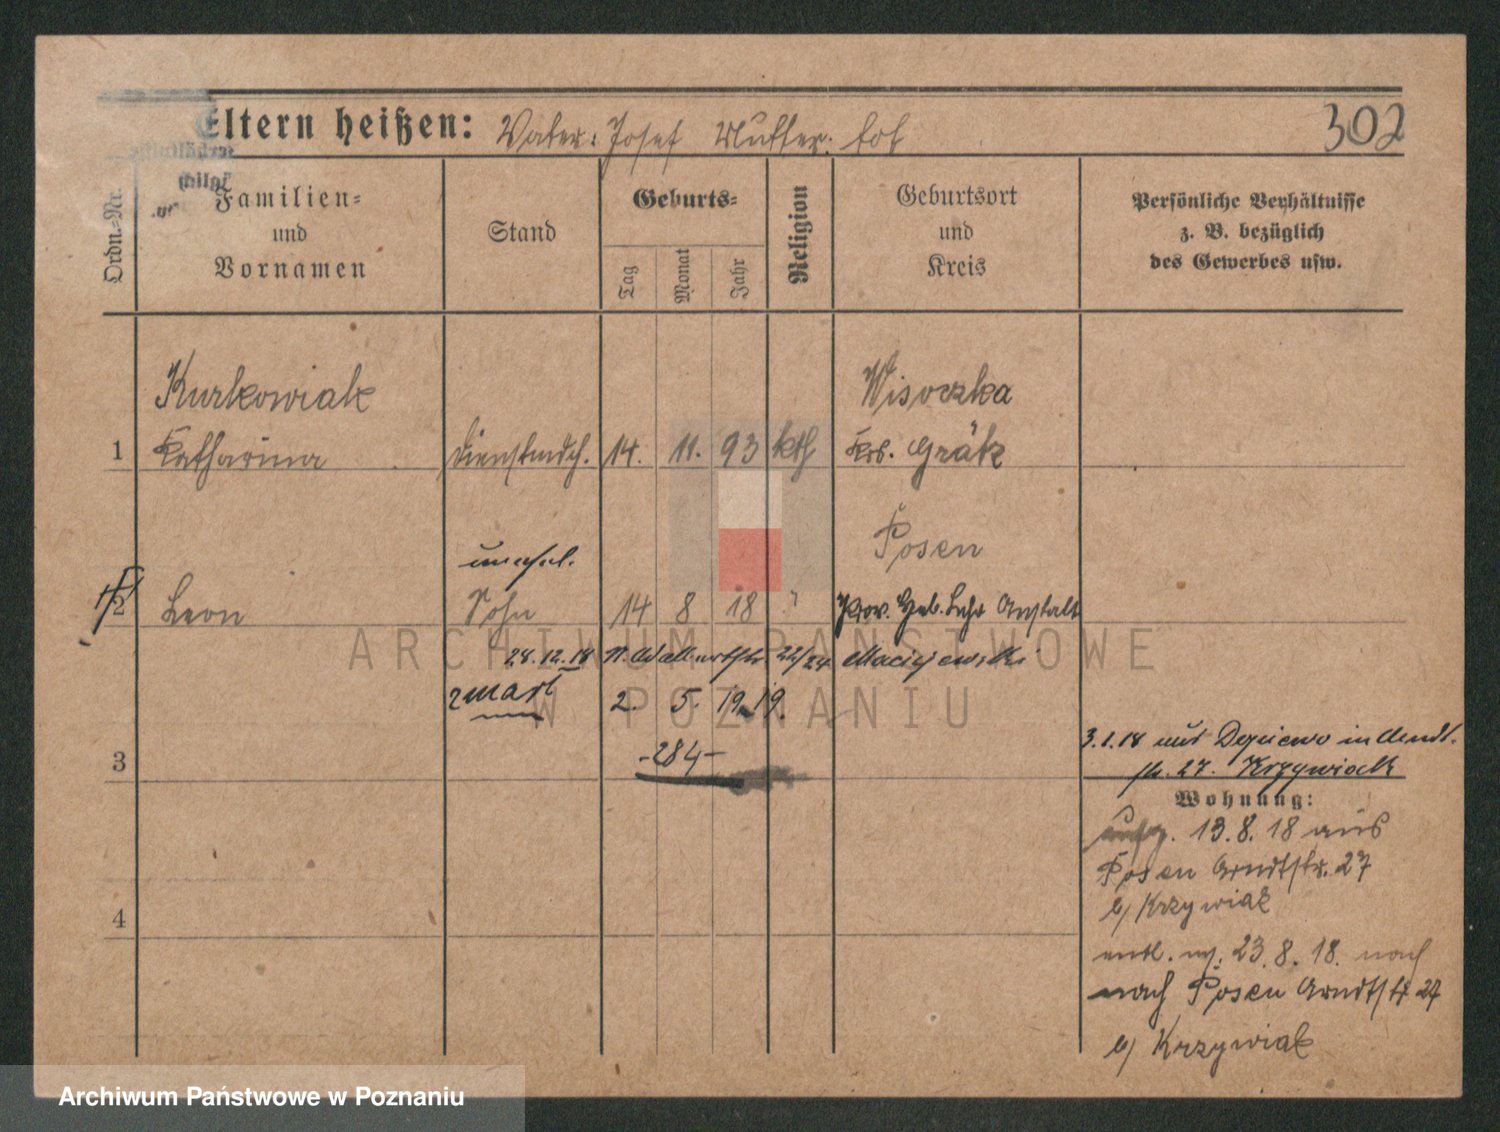 Eltern heißen: Vater: Josef Mutter: tot
302
Ordn.-Nr.
Familien-
und
Vornamen
Stand
Geburts-
Tag
Monat
Jahr
Religion
Geburtsort
und
Kreis
Persönliche Verhältnisse
z. B. bezüglich
des Gewerbes usw.
Kurkowiak
Wisoczka
1 Katharina Dienstmdch. 14. 11. 93 kth Krs. Grätz
Posen
unehel.
2 Leon Sohn 14 8 18 ? Prov. Heb. Lehr Anstalt
28.12.18 22/24 Maciejewski
zmarł 2. 5. 1919.
3.1.18 aus in
3 -284- 27. Krzywiak
Wohnung:
13.8.18 aus
Posen Arndtstr. 27
b/ Krzywiak
4
entl. 23.8.18. nach
nach Posen Arndtstr 27
b/ Krzywiak
ARCHIWUM PAŃSTWOWE
W POZNANIU
Archiwum Państwowe w Poznaniu